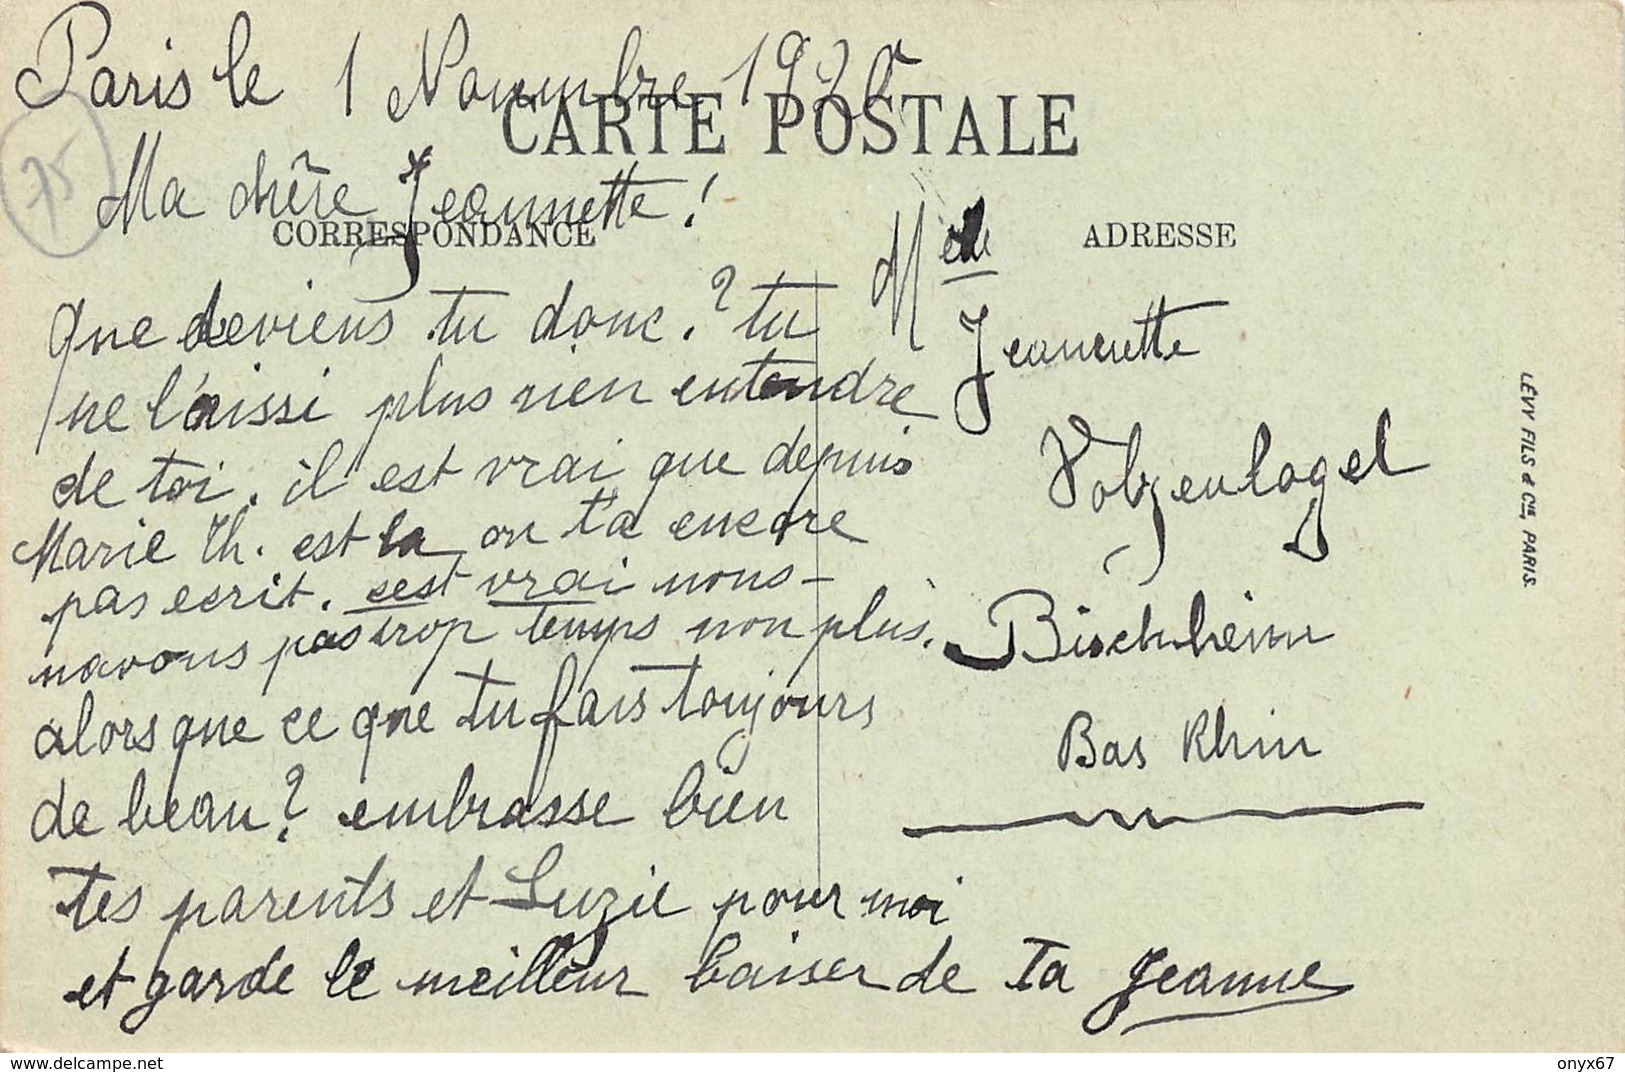 Paris le 1 Novembre
CARTE POSTALE
75
Ma chère Jeannette!
CORRESPONDANCE
que deviens tu donc.? tu
ne l'aissi plus rien entendre
de toi. il est vrai que depuis
Marie Th. est la on t'a encore
pas ecrit. cest vrai nous-
navons pas trop temps non plus.
alors que ce que tu fais toujours
de beau? embrasse bien
tes parents et Suzie pour moi
et garde le meilleur baiser de Ta Jeanne
ADRESSE
Melle
Jeannette
Volzenlogel
Bischheim
Bas Rhin
LÉVY FILS & Cie, PARIS.
https://www.delcampe.net
onyx67